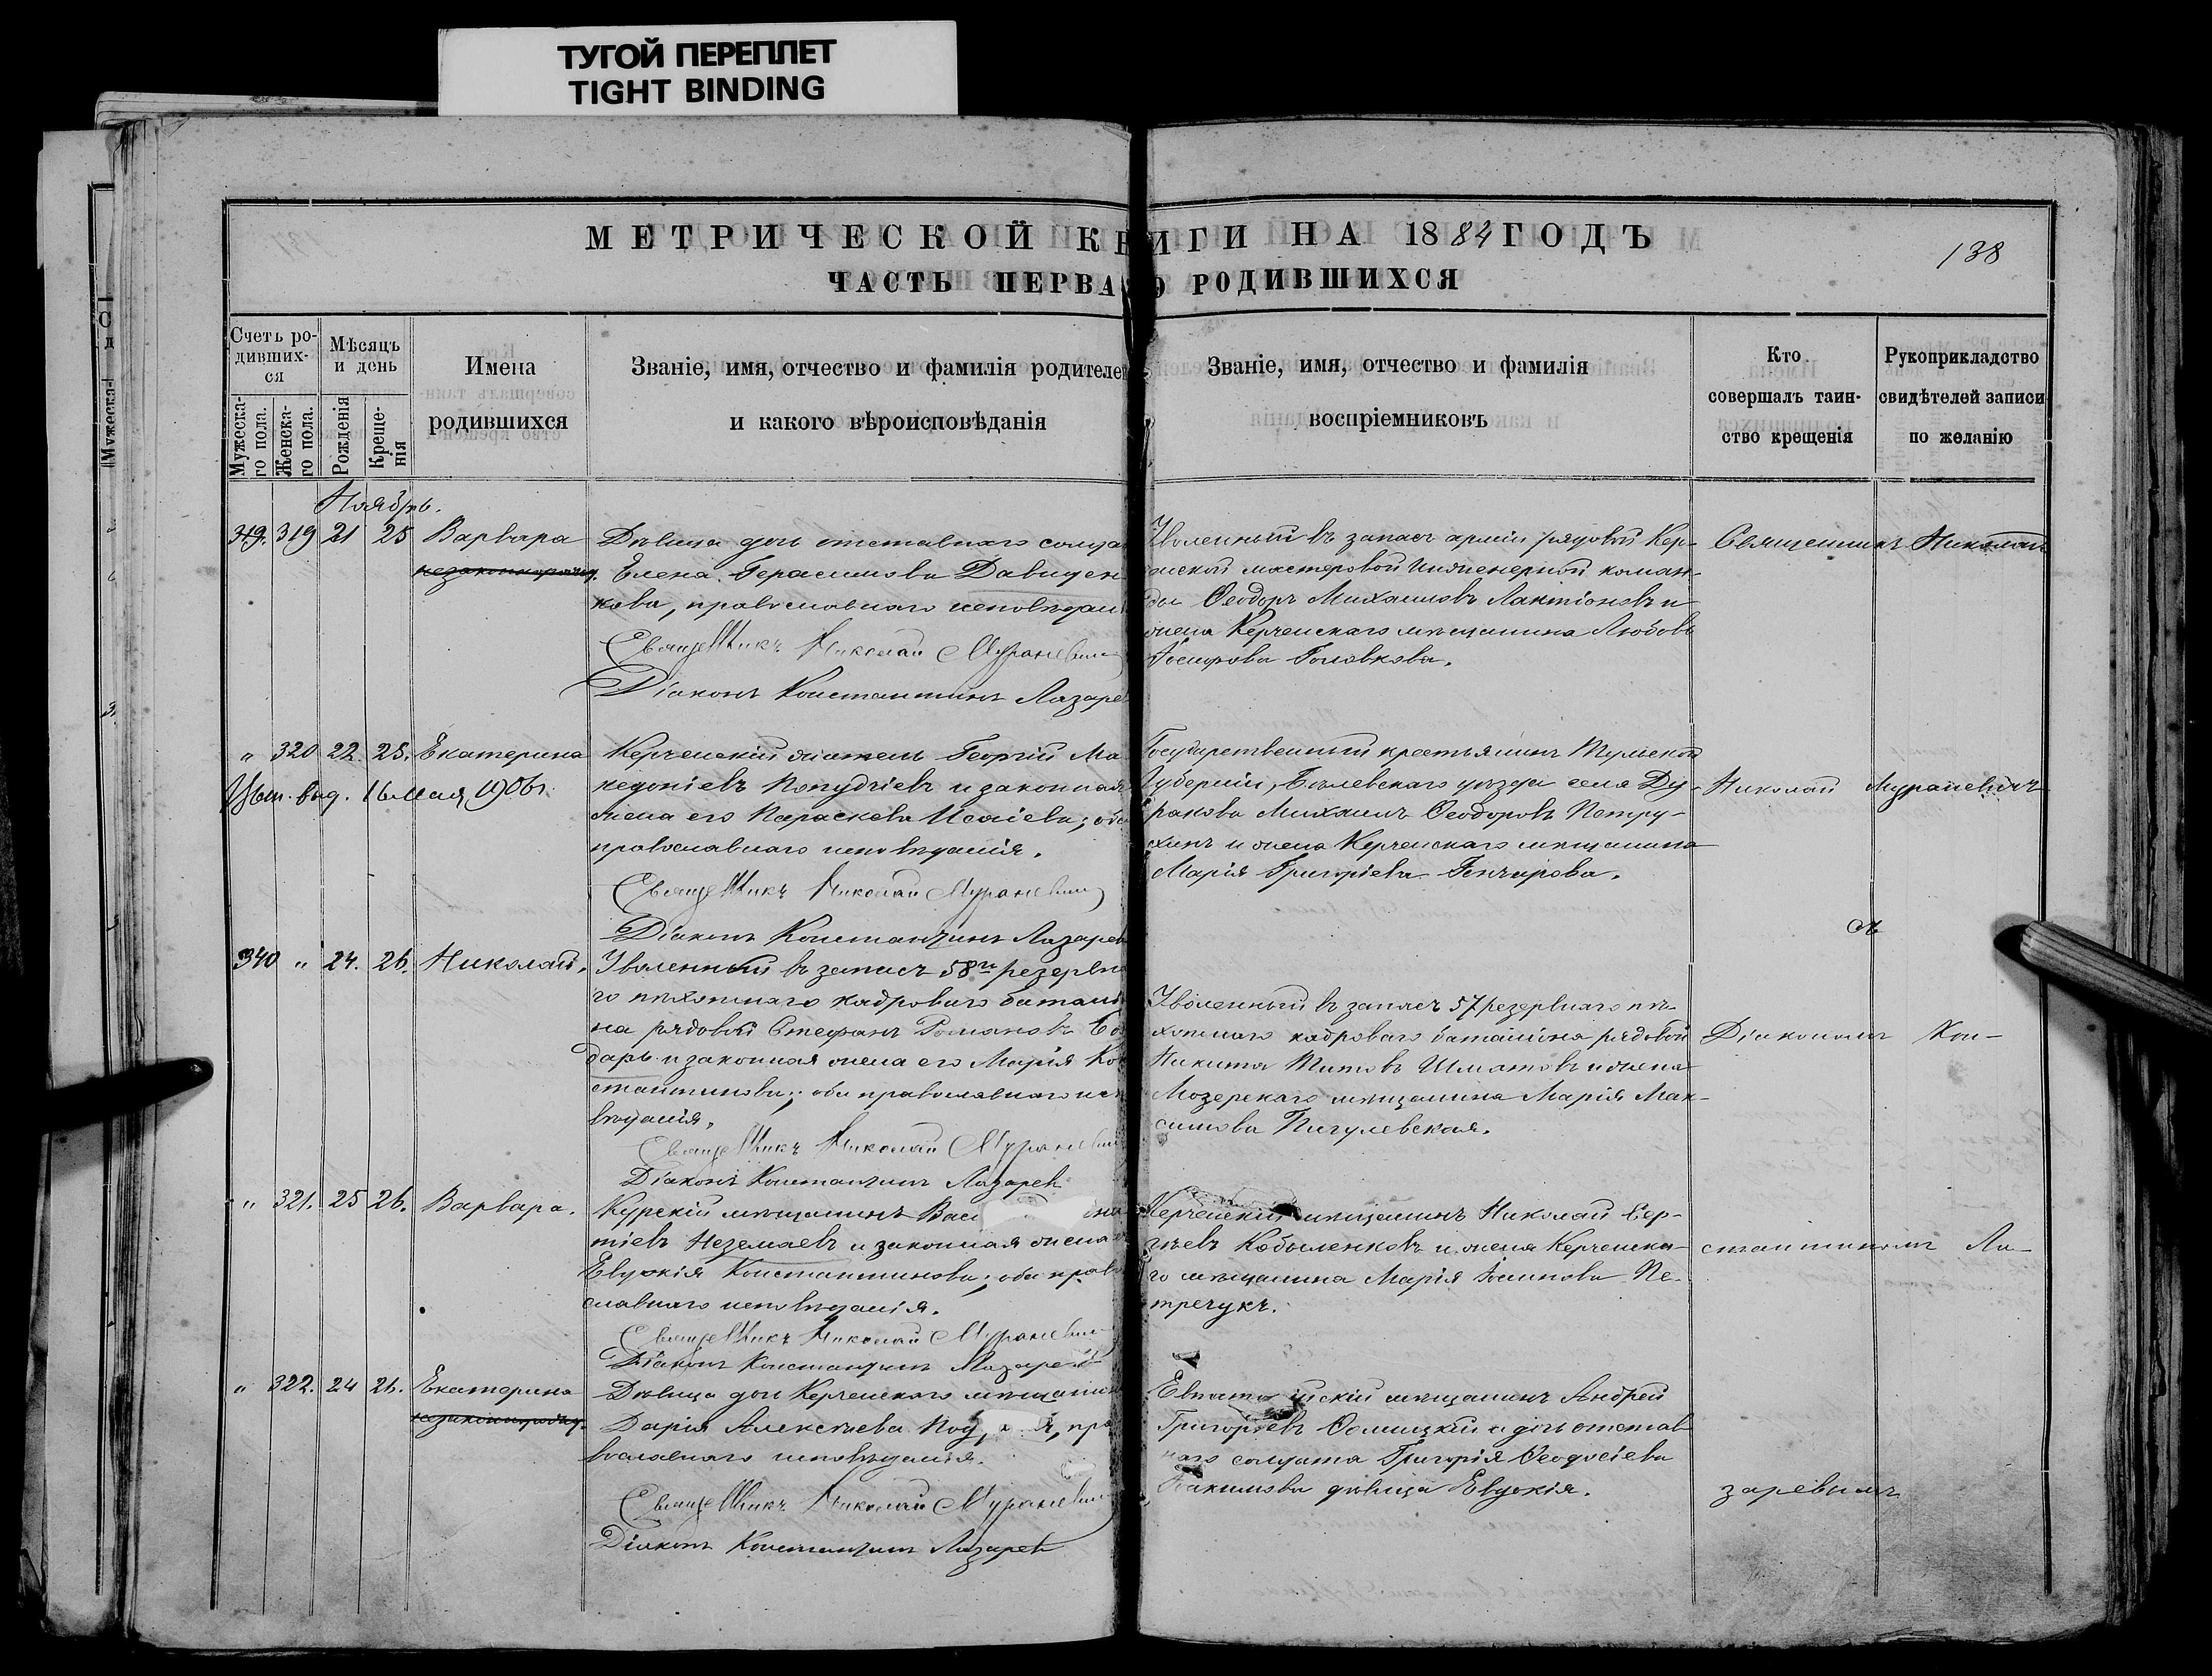 ТУГОЙ ПЕРЕПЛЕТ
TIGHT BINDING
МЕТРИЧЕСКОЙ КНИГИ НА 1884 ГОДЪ
138
ЧАСТЬ ПЕРВА О РОДИВШИХСЯ
Счетъ ро-
дивших-
ся
Мужеска-
го пола.
Женска-
го пола.
Мѣсяцъ
и день
Рожденія
Креще-
нія
Имена
родившихся
Званіе, имя, отчество и фамилія родителей
и какого вѣроисповѣданія
Званіе, имя, отчество и фамилія
воспріемниковъ
Кто
совершалъ таин-
ство крещенія
Рукоприкладство
свидѣтелей записи
по желанію
Ноябрь.
319. 319 21 25 Варвара
незаконнорожд.
Дѣвица дочь отставнаго солда
Елена Герасимова Давиден
кова, православнаго исповѣдан
Священникъ Николай Мураневич
Діаконъ Константинъ Лазаре
Уволенный въ запасъ арміи рядовой Кер-
ченской мастеровой Инженерной коман-
ды Ѳеодоръ Михаиловъ Лактіоновъ и
жена Керченскаго мѣщанина Любовь
Іосифова Головкова.
Священникъ Николай
" 320 22. 25. Екатерина
Мет. выд. 16 Мая 1906 г.
Керченскій житель Георгій Ма
кедоніевъ Попудчіевъ и законная
жена его Параскева Исаіева; оба
православнаго исповѣданія.
Священникъ Николай Мураневич
Діаконъ Константинъ Лазарев
Государственный крестьянинъ Тульской
Губерніи, Бѣлевскаго уѣзда села Ду-
ракова Михаилъ Ѳеодоровъ Петру-
хинъ и жена Керченскаго мѣщанина
Марія Григоріева Гончарова.
Николай Мураневичъ
съ
340 " 24. 26. Николай.
Уволенный въ запасъ 58го резервна
го пѣхотнаго кадроваго баталіо
на рядовой Стефанъ Романовъ Бо
дарь и законная жена его Марія Кон
стантинова; оба православнаго исп
вѣданія.
Священникъ Николай Мураневич
Діаконъ Константинъ Лазарев
Уволенный въ запасъ 57 резервнаго пѣ-
хотнаго кадроваго баталіона рядовой
Никита Титовъ Шматовъ и жена
Мозерскаго мѣщанина Марія Мак-
симова Пигулевская.
Діакономъ Кон-
" 321. 25 26. Варвара.
Курскій мѣщанинъ Васи
тіевъ Неземаевъ и законная жена
Евдокія Константинова; оба прав
славнаго исповѣданія.
Священникъ Николай Мураневич
Діаконъ Константинъ Лазарев
Керченскій мѣщанинъ Николай Сер-
гѣевъ Кобыленковъ и жена Керченска-
го мѣщанина Марія Іосипова Пе-
тречукъ.
стантиномъ Ла-
" 322. 24 26. Екатерина
незаконнорожд.
Дѣвица дочь Керченскаго мѣщанин
Дарія Алексѣева Под пра
вославнаго исповѣданія.
Священникъ Николай Мураневич
Діаконъ Константинъ Лазарев
Евпато ійскій мѣщанинъ Андрей
Григорьевъ Осмицкій и дочь отстав
наго солдата Григорія Ѳеодосіева
дѣвица Евдокія.
заревымъ